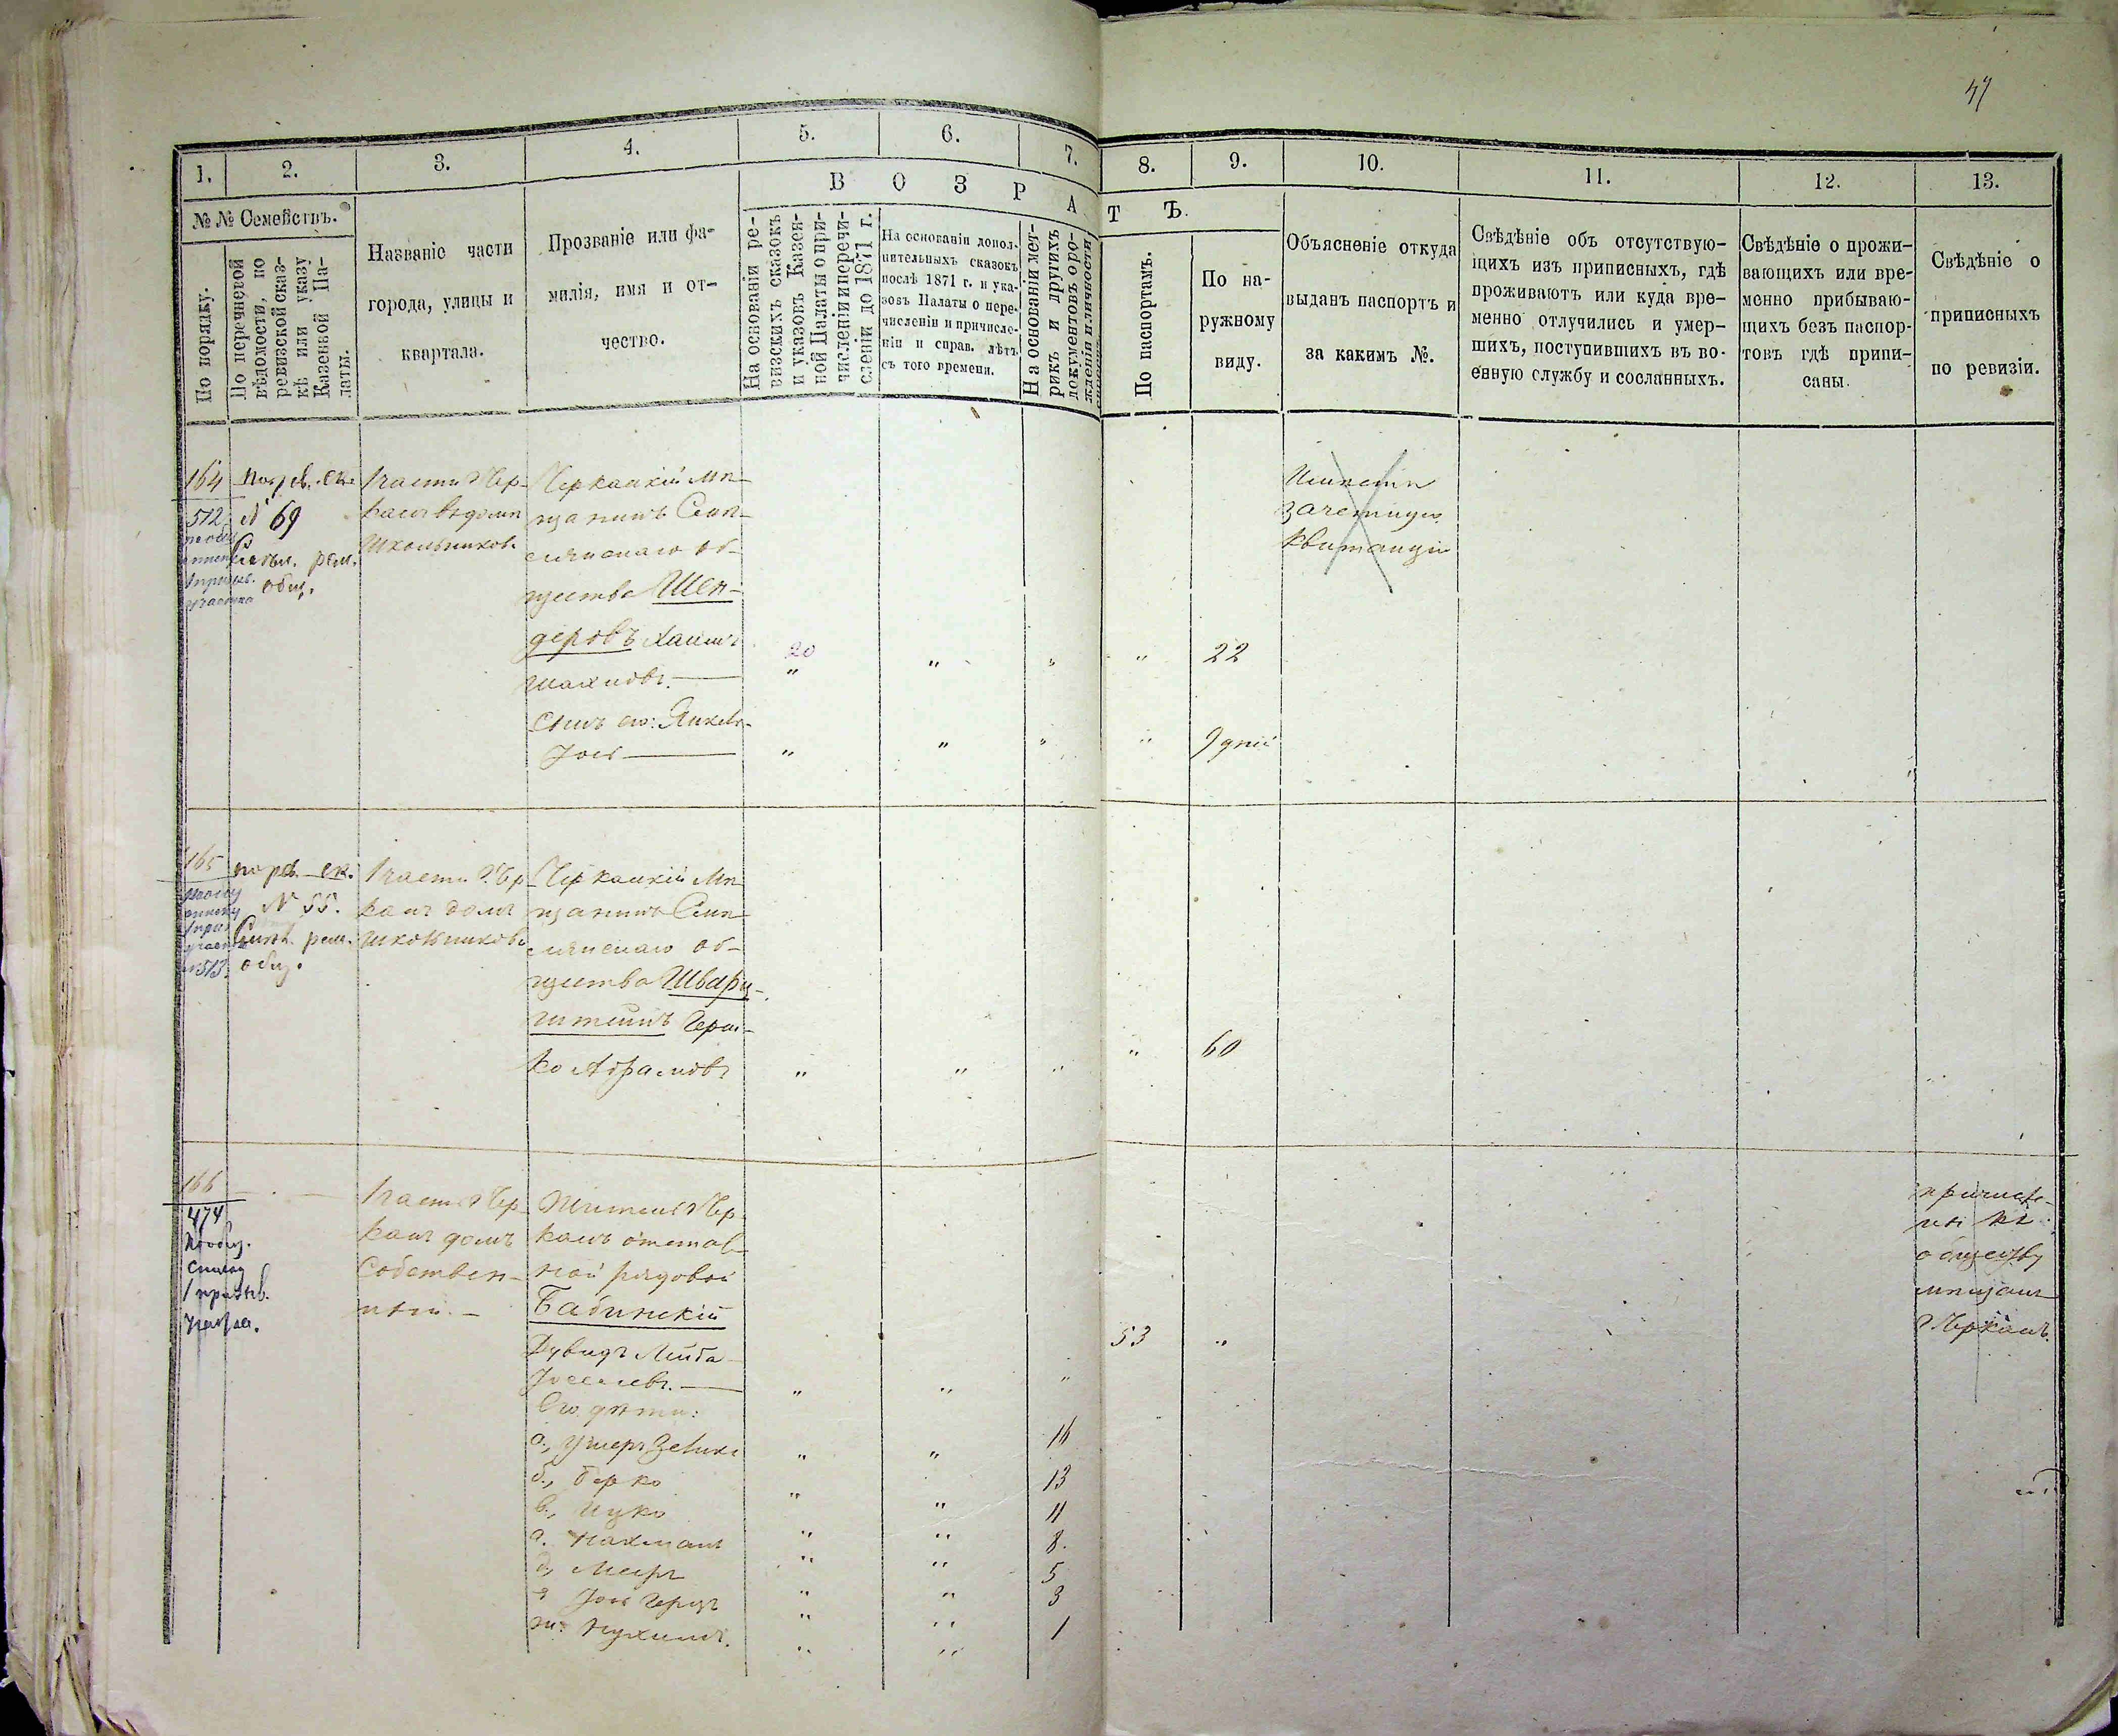 47
1.
2.
3.
4.
5.
6.
7.
8.
9.
10.
11.
12.
13.
№ № Семействъ.
По порядку.
По перечневой
вѣдомости, по
ревизской сказ-
кѣ или указу
Казенной Па-
латы.
Названіе части
города, улицы и
квартала.
Прозваніе или фа-
милія, имя и от-
чество.
В О З Р А
Т Ъ.
На основаніи ре-
визскихъ сказокъ
и указовъ Казен-
ной Палаты о при-
численіи и перечи-
сленіи до 1871 г.
На основаніи допол-
нительныхъ сказокъ
послѣ 1871 г. и ука-
зовъ Палаты о пере-
численіи и причисле-
ніи и справ. лѣтъ
съ того времени.
На основаніи мет-
рикъ и другихъ
документовъ о ро-
жденіи и личности
По паспортамъ.
По на-
ружному
виду.
Объясненіе откуда
выданъ паспортъ и
за какимъ №.
Свѣдѣніе объ отсутствую-
щихъ изъ приписныхъ, гдѣ
проживаютъ или куда вре-
менно отлучились и умер-
шихъ, поступившихъ въ во-
енную службу и сосланныхъ.
Свѣдѣніе о прожи-
вающихъ или вре-
менно прибываю-
щихъ безъ паспор-
товъ гдѣ припи-
саны.
Свѣдѣніе о
приписныхъ
по ревизіи.
164
512
№ 69
рем.
общ.
1 части г. Чер-
Школьникова
Черкаскій мѣ-
щанинъ Смѣ-
лянскаго об-
щества Шен-
деровъ Хаимъ
20
"
"
"
"
22
сынъ его: Янкель-
Іось
"
"
"
"
9 дней
зачетную
квитанцію
165
по рев. ск.
№ 55.
рем.
общ.
№ 513
1 части г. Чер
касъ домъ
Школьникова
Черкаскій мѣ
щанинъ Смѣ
лянскаго об-
щества Шварц-
штейнъ Герш-
ко Абрамовъ
"
"
"
"
60
166
474
по общ.
списку
1 призыв.
участ.
1 части г. Чер
касъ домъ
собствен-
ный
Житель г. Чер
касъ отстав-
ной рядовой
Бабинскій
Дувидъ Лейба
Іоселевъ.
"
"
"
53
"
Его дѣти:
а., Ушеръ Зеликъ
"
"
16
б., Берко
"
"
13
в., Ицко
"
"
11
г. Нахманъ
"
"
8.
д., Мееръ
"
"
5
е Іось Герцъ
"
"
3
ж. Нухимъ.
"
"
1
причисле-
ны къ
обществу
мѣщанъ
г. Черкасъ.